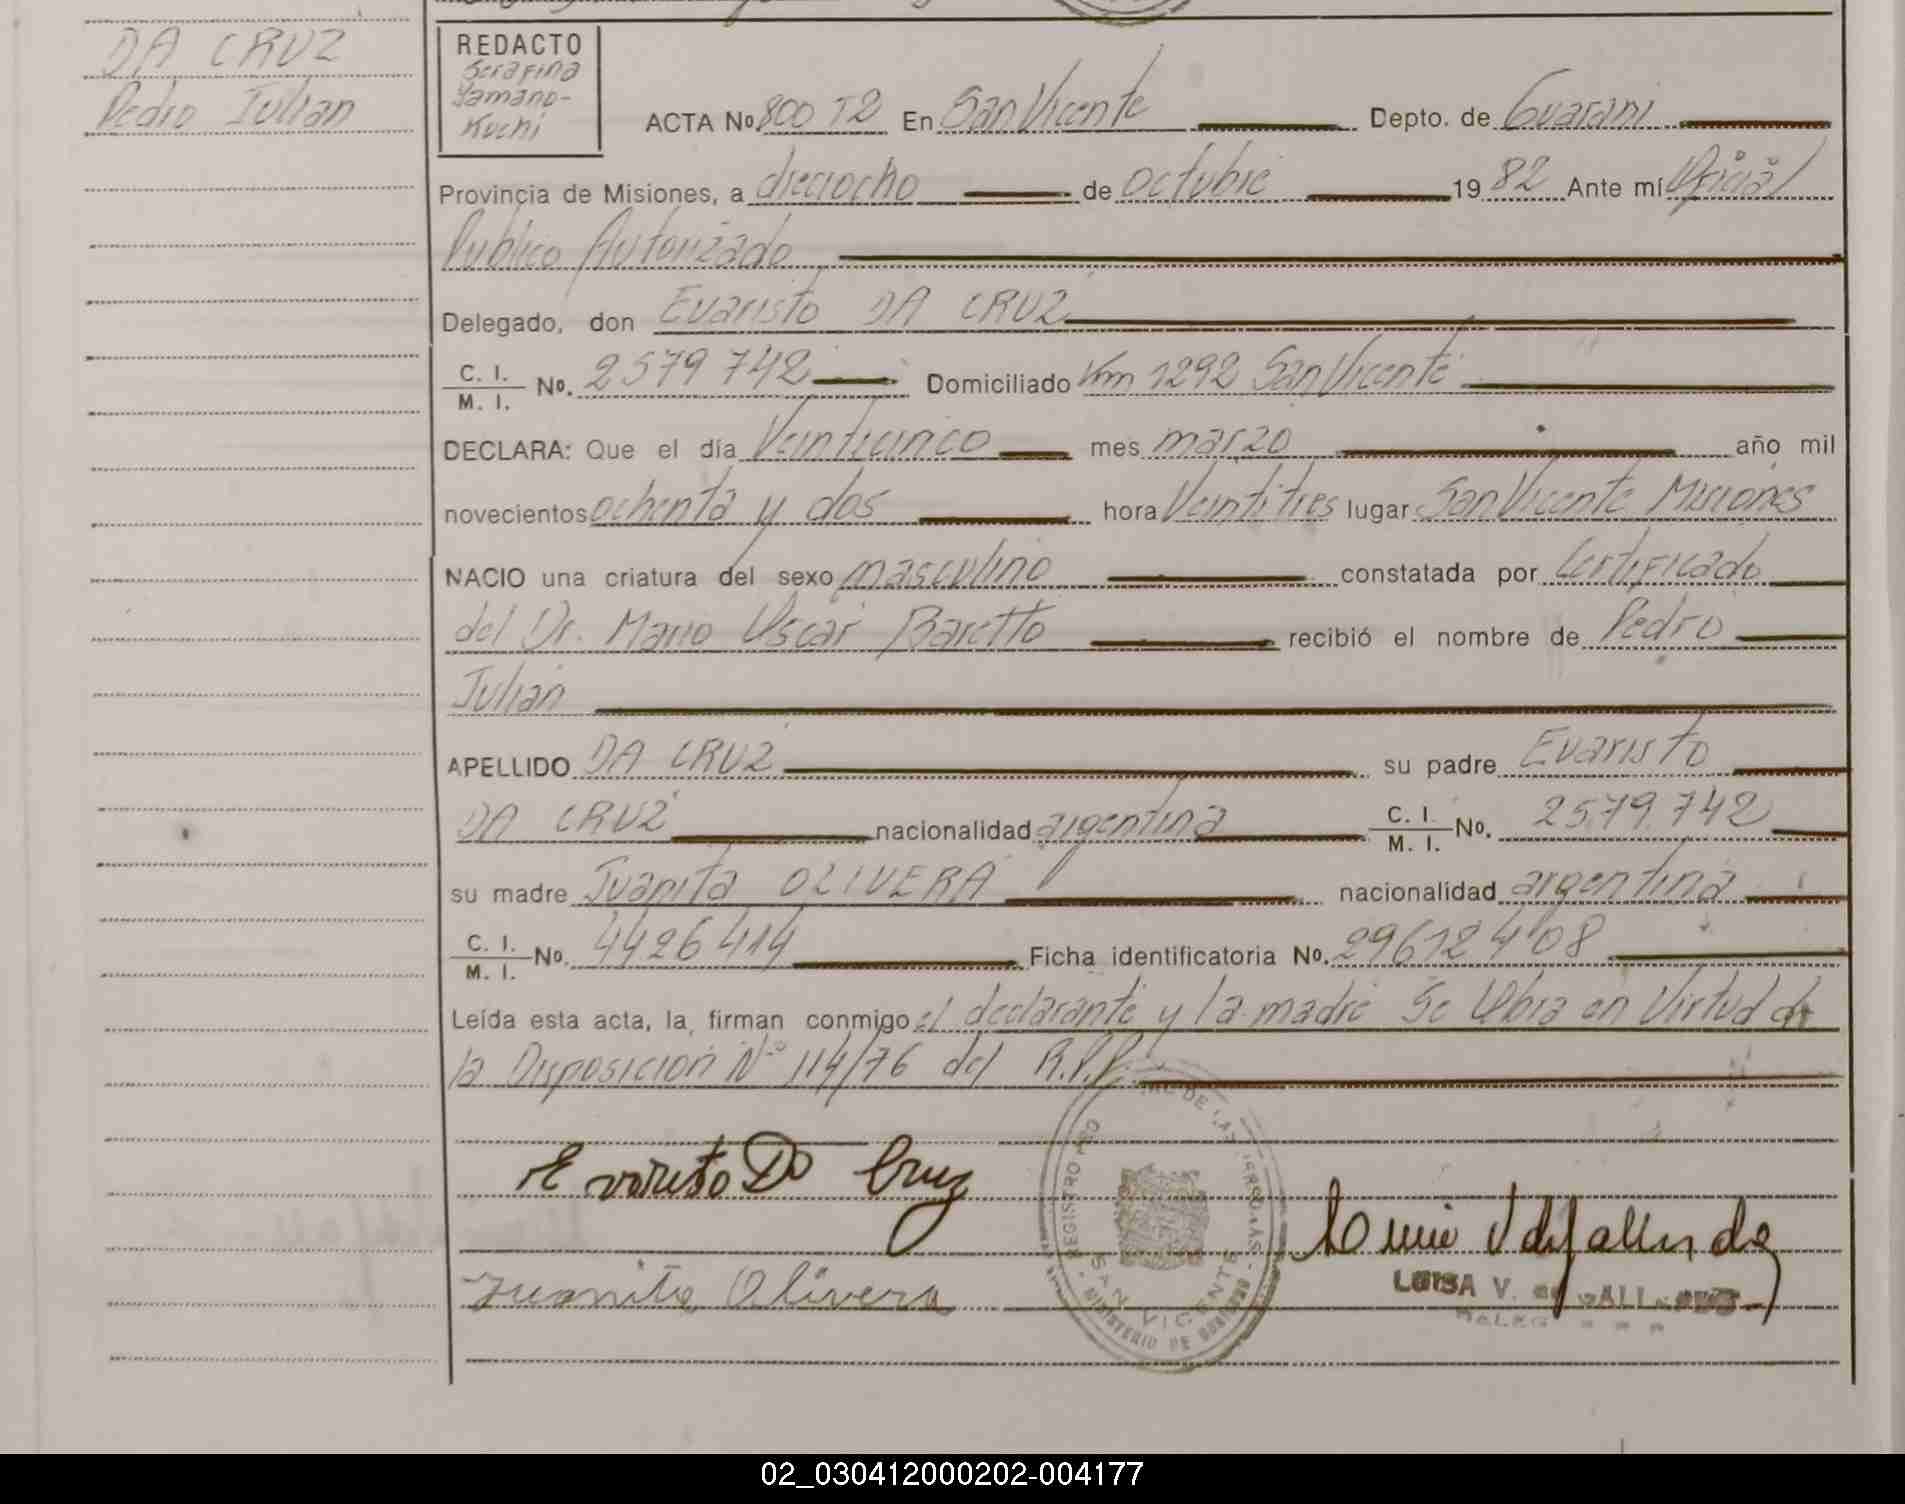 DA CRUZ
Pedro Julian
REDACTO
Serafina
Yamano-
Kuchi
ACTA No. 800 T2 En San Vicente Depto. de Guarani
Provincia de Misiones, a dieciocho de octubre 1982 Ante mí Oficial
Publico Autorizado
Delegado, don Evaristo DA CRUZ
C. I.
M. I. No. 2579742 Domiciliado Km 1292 San Vicente
DECLARA: Que el día Veinticinco mes marzo año mil
novecientos ochenta y dos hora Veintitres lugar San Vicente Misiones
NACIO una criatura del sexo masculino constatada por Certificado
del Dr. Mario Oscar Baretto recibió el nombre de Pedro
Julian
APELLIDO DA CRUZ su padre Evaristo
DA CRUZ nacionalidad argentina C. I.
M. I. No. 2579.742
su madre Juanita OLIVERA nacionalidad argentina
C. I.
M. I. No. 4426414 Ficha identificatoria No. 29612408
Leída esta acta, la firman conmigo el declarante y la madre Se labra en Virtud de
la Disposición Nº 114/76 del R.P.P.
Evaristo Da Cruz
Juanita Olivera
REGISTRO DE LAS PERSONAS
SAN VICENTE
MINISTERIO DE GOBIERNO
LUISA V. de
02_030412000202-004177